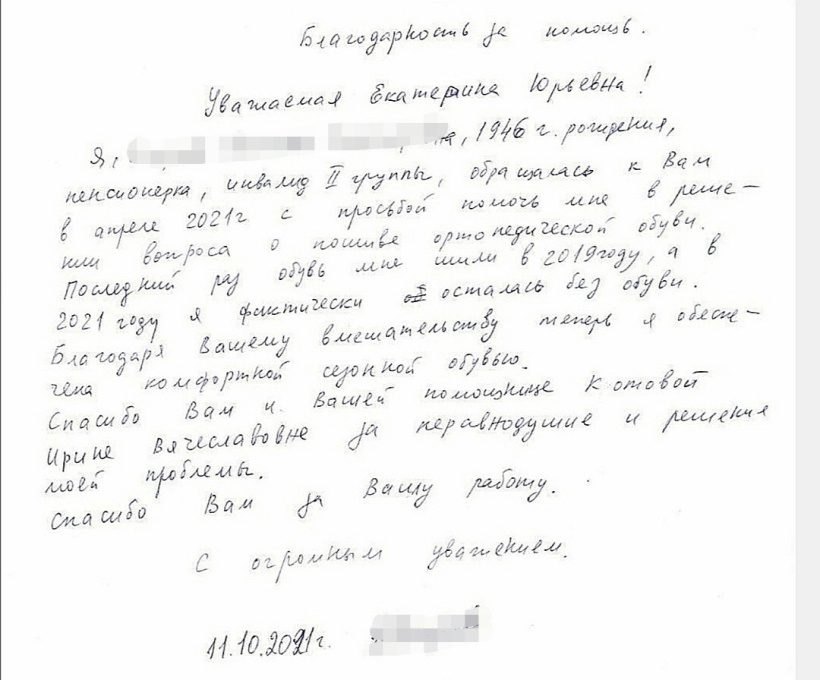 Благодарность за помощь.
Уважаемая Екатерина Юрьевна!
Я, на, 1946 г. рождения,
пенсионерка, инвалид II группы, обращалась к Вам
в апреле 2021г с просьбой помочь мне в реше-
нии вопроса о пошиве ортопедической обуви.
Последний раз обувь мне шили в 2019году, а в
2021 году я фактически осталась без обуви.
Благодаря Вашему вмешательству теперь я обеспе-
чена комфортной сезонной обувью.
Спасибо Вам и Вашей помощнице Котовой
Ирине Вячеславовне за неравнодушие и решение
моей проблемы.
Спасибо Вам за Вашу работу.
С огромным уважением.
11.10.2021г.